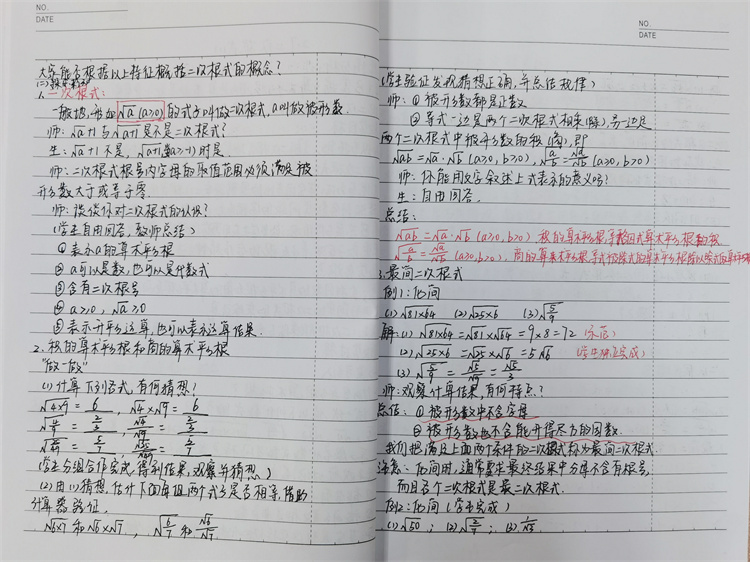 NO.
DATE
大家能否根据以上特征概括二次根式的概念?
1. 二次根式:
一般地,形如√a (a≥0) 的式子叫做二次根式, a叫做被开方数
师: √a+1 与√a+1 是不是二次根式?
生: √a+1 不是, √a+1(a≥-1)时是
师: 二次根式根号内字母的取值范围必须满足被
开方数大于或等于零.
师: 谈谈你对二次根式的认识?
(学生自由回答, 教师总结)
①表示a的算术平方根
②a可以是数,也可以是代数式
③含有二次根号
④a≥0, √a≥0
⑤表示开平方运算,也可以表示运算结果.
2. 积的算术平方根和商的算术平方根
"做一做"
(1) 计算下列各式,有何猜想?
√4×9 = 6 , √4×√9 = 6
√4/9 = 2/3 , √4/√9 = 2/3
√25/49 = 5/7 , √25/√49 = 5/7
(学生分组合作完成,得到结果,观察并猜想)
(2) 由(1)猜想,估计下面每组两个式子是否相等,借助
计算器验证.
√6×7 和 √6×√7 , √6/7 和 √6/√7
NO.
DATE
(学生验证发现猜想正确,并总结规律)
师: ①被开方数都是正数
②等式一边是两个二次根式相乘(除),另一边是
两个二次根式中被开方数的积(商),即
√ab = √a·√b (a≥0, b≥0), √a/b = √a/√b (a≥0, b>0)
师: 你能用文字叙述上式表示的意义吗?
生: 自由回答.
总结:
√ab = √a·√b (a≥0, b≥0) 积的算术平方根,等于各因式算术平方根的积
√a/b = √a/√b (a≥0, b>0), 商的算术平方根,等于被除式的算术平方根除以除式的算术平方根
3. 最简二次根式
例1: 化简
(1) √81×64 (2) √25×6 (3) √5/9
解: (1) √81×64 = √81×√64 = 9×8=72 (示范)
(2) √25×6 = √25×√6 = 5√6 (学生独立完成)
(3) √5/9 = √5/√9 = √5/3
师: 观察计算结果,有何特点?
总结: ①被开方数中不含分母
②被开方数也不含能开得尽方的因数.
我们把满足上面两个条件的二次根式称为最简二次根式.
注意: 化简时,通常要求最终结果中分母不含有根号,
而且各个二次根式是最二次根式.
例2: 化简 (学生完成)
(1) √50 ; (2) √2/7 ; (3) 1/√3